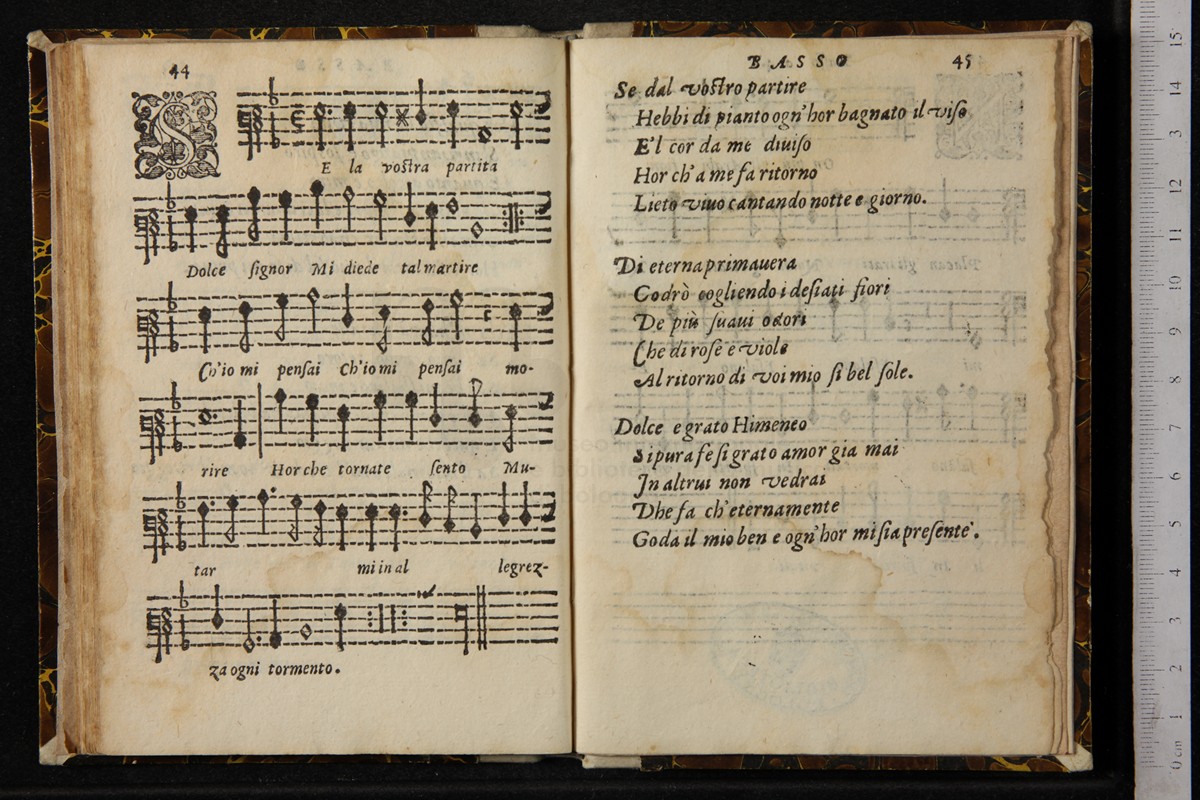 44
S
E la voſtra partita
Dolce ſignor Mi diede tal martire
Ch'io mi penſai Ch'io mi penſai mo-
rire Hor che tornate ſento Mu-
tar mi in al legrez-
za ogni tormento.
BASSO 45
Se dal voſtro partire
Hebbi di pianto ogn'hor bagnato il viſo
E'l cor da me diuiſo
Hor ch'a me fa ritorno
Lieto viuo cantando notte e giorno.
Di eterna primauera
Godrò cogliendo i deſiati fiori
De più ſuaui odori
Che di roſe e viole
Al ritorno di voi mio ſi bel ſole.
Dolce e grato Himeneo
Si pura fe ſi grato amor gia mai
In altrui non vedrai
Dhe fa ch'eternamente
Goda il mio ben e ogn'hor mi ſia preſente.
0 cm 1 2 3 4 5 6 7 8 9 10 11 12 13 14 15